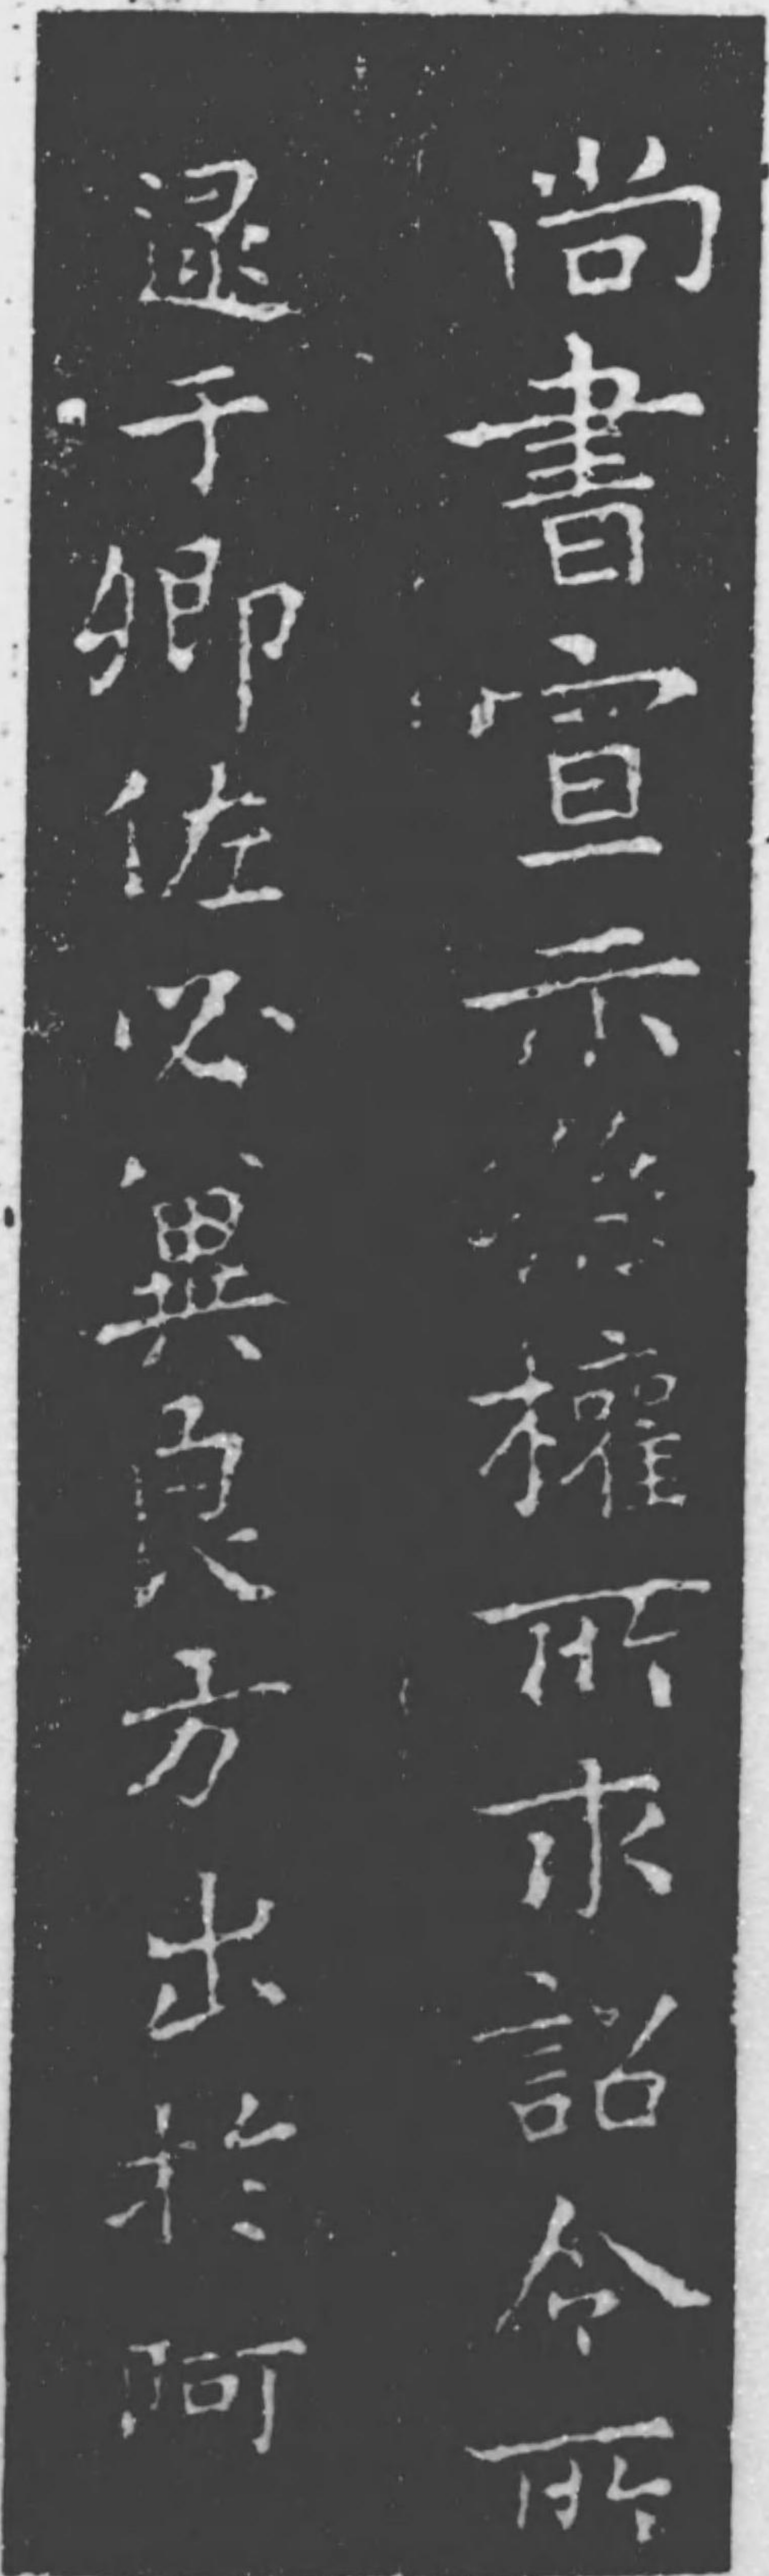 尚書宣示孫權所求詔令所
逮于卿佐必異良方出於阿